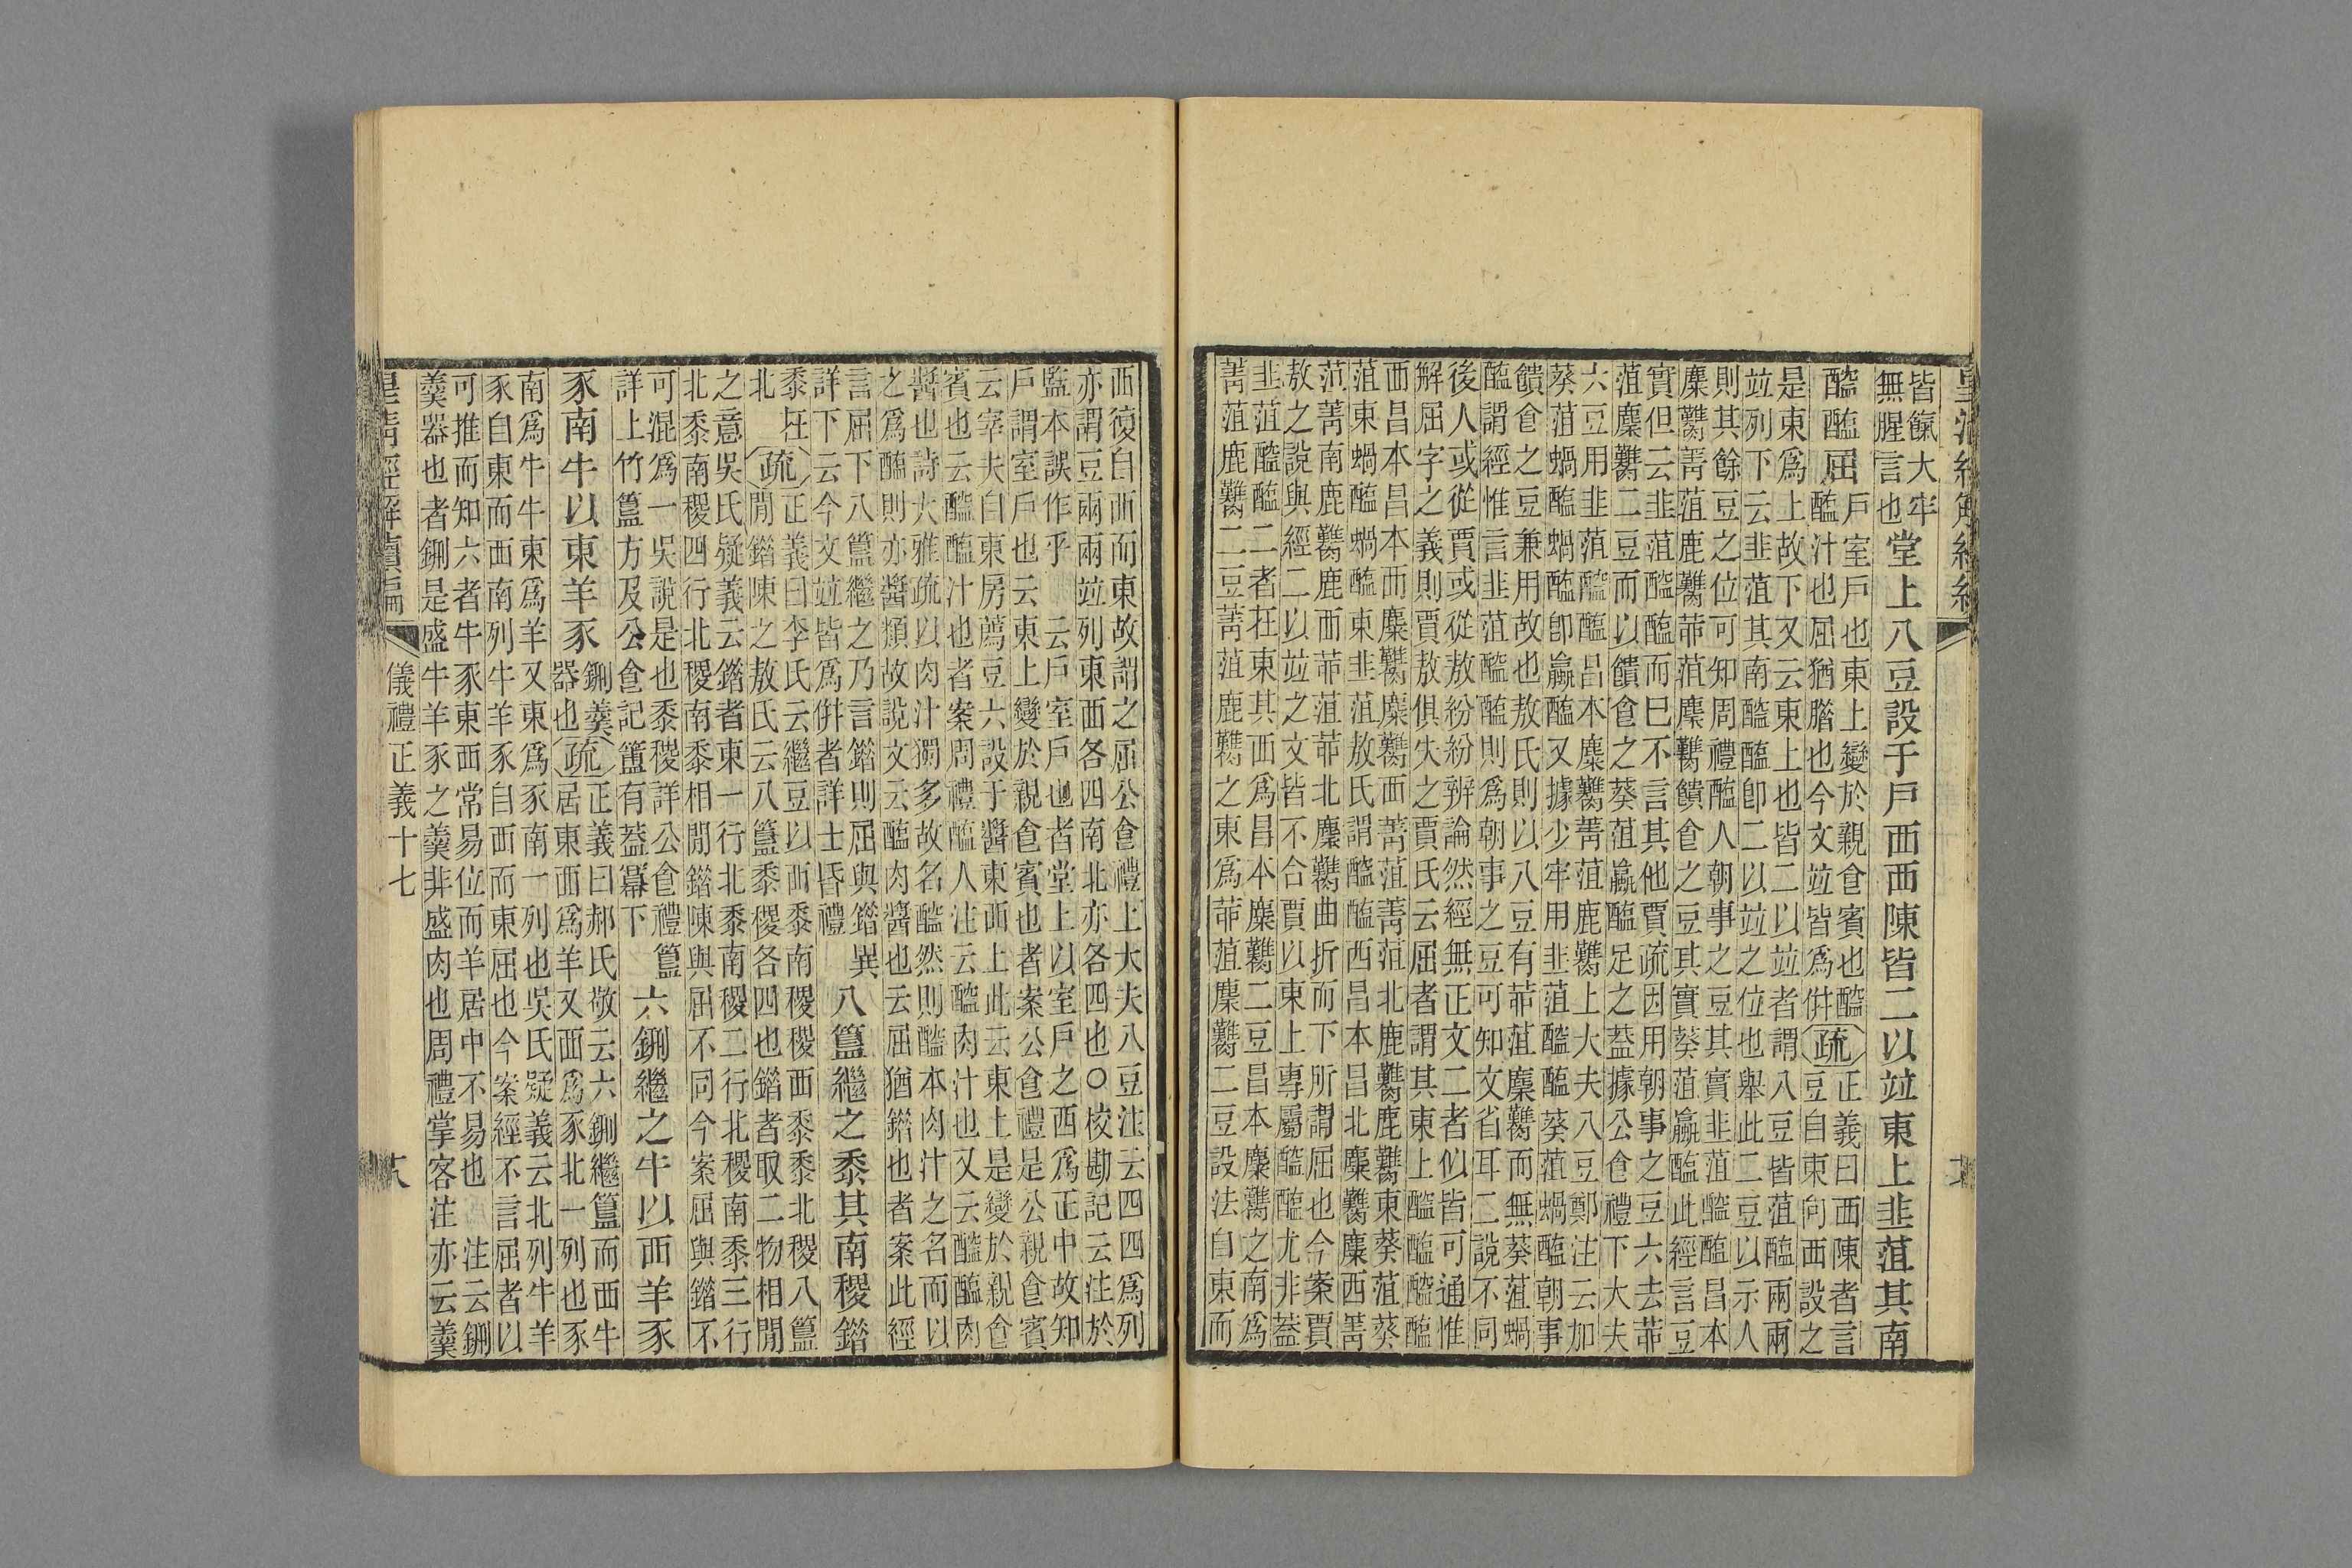 皆餼大牢
無腥言也
堂上八豆設于戶西西陳皆二以竝東上韭菹其南
醓醢屈
戶室戶也東上變於親食賓也醓
醢汁也屈猶錯也今文竝皆爲併
疏
正義曰西陳者言
豆自東向西設之
是東爲上故下又云東上也皆二以竝者謂八豆皆菹醢兩兩
竝列下云韭菹其南醓醢卽二以竝之位也舉此二豆以示人
則其餘豆之位可知周禮醢人朝事之豆其實韭菹醓醢昌本
麋臡菁菹鹿臡茆菹麋臡饋食之豆其實葵菹蠃醢此經言豆
實但云韭菹醓醢而已不言其他賈疏因用朝事之豆六去茆
菹麋臡二豆而以饋食之葵菹蠃醢足之蓋據公食禮下大夫
六豆用韭菹醓醢昌本麋臡菁菹鹿臡上大夫八豆鄭注云加
葵菹蝸醢蝸醢卽蠃醢又據少牢用韭菹醓醢葵菹蝸醢朝事
饋食之豆兼用故也敖氏則以八豆有茆菹麋臡而無葵菹蝸
醢謂經惟言韭菹醓醢則爲朝事之豆可知文省耳二說不同
後人或從賈或從敖紛紛辨論然經無正文二者似皆可通惟
解屈字之義則賈敖俱失之賈氏云屈者謂其東上醓醢醓醢
西昌本昌本西麋臡麋臡西菁菹菁菹北鹿臡鹿臡東葵菹葵
菹東蝸醢蝸醢東韭菹敖氏謂醓醢西昌本昌北麋臡麋西菁
菹菁南鹿臡鹿西茆菹茆北麋臡曲折而下所謂屈也今案賈
敖之說與經二以竝之文皆不合賈以東上專屬醓醢尤非蓋
韭菹醓醢二者在東其西爲昌本麋臡二豆昌本麋臡之南爲
菁菹鹿臡二豆菁菹鹿臡之東爲茆菹麋臡二豆設法自東而
西復自西而東故謂之屈公食禮上大夫八豆注云四四爲列
亦謂豆兩兩竝列東西各四南北亦各四也○校勘記云注於
監本誤作乎　云戶室戶也者堂上以室戶之西爲正中故知
戶謂室戶也云東上變於親食賓也者案公食禮是公親食賓
云宰夫自東房薦豆六設于醬東西上此云東上是變於親食
賓也云醓醢汁也者案周禮醢人注云醓肉汁也又云醓醢肉
醬也詩大雅疏以肉汁獨多故名醓然則醓本肉汁之名而以
之爲醢則亦醬類故說文云醢肉醬也云屈猶錯也者案此經
言屈下八簋繼之乃言錯則屈與錯異
詳下云今文竝皆爲併者詳士昏禮
八簋繼之黍其南稷錯
黍在
北
疏
正義曰李氏云繼豆以西黍南稷稷西黍黍北稷八簋
閒錯陳之敖氏云八簋黍稷各四也錯者取二物相閒
之意吳氏疑義云錯者東一行北黍南稷二行北稷南黍三行
北黍南稷四行北稷南黍相閒錯陳與屈不同今案屈與錯不
可混爲一吳說是也黍稷詳公食禮簋
詳上竹簋方及公食記簠有蓋冪下
六鉶繼之牛以西羊豕
豕南牛以東羊豕
鉶羹
器也
疏
正義曰郝氏敬云六鉶繼簋而西牛
居東西爲羊又西爲豕北一列也豕
南爲牛牛東爲羊又東爲豕南一列也吳氏疑義云北列牛羊
豕自東而西南列牛羊豕自西而東屈也今案經不言屈者以
可推而知六者牛豕東西常易位而羊居中不易也　注云鉶
羹器也者鉶是盛牛羊豕之羹非盛肉也周禮掌客注亦云羹
皇清經解續編
儀禮正義十七